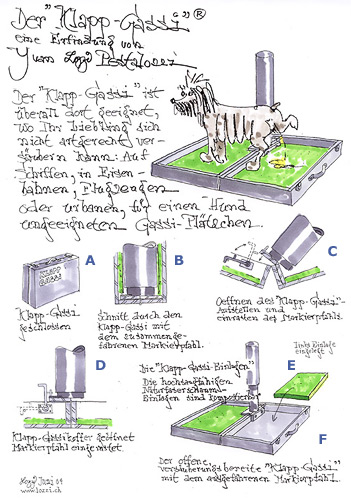 Der "Klapp-Gassi"®
eine Erfindung von
Yvan Lozzi Pestalozzi
Der "Klapp-Gassi" ist
überall dort geeignet,
wo Ihr Liebling sich
nicht artgerecht ver-
säubern kann. Auf
Schiffen, in Eisen-
bahnen, Flugzeugen
oder urbanen, für einen Hund
ungeeigneten Gassi-Plätzchen.
A
KLAPP
GASSI
Klapp-Gassi
geschlossen
B
Schnitt durch den
Klapp-Gassi mit
dem zusammenge-
fahrenen Markierpfahl.
C
Oeffnen des "Klapp-Gassi".
Aufstellen und
einrasten des Markierpfahls.
D
Klapp-Gassikoffer geöffnet
Markierpfahl eingerastet.
Die "Klapp-Gassi-Einlagen"
Die hochsaugfähigen
Naturfaserschaum-
Einlagen sind
E
links Einlage
eingelegt
F
Der offene,
versäuberungsbereite "Klapp-Gassi"
mit dem ausgefahrenen Markierpfahl.
Lozzi 09
www.lozzi.ch